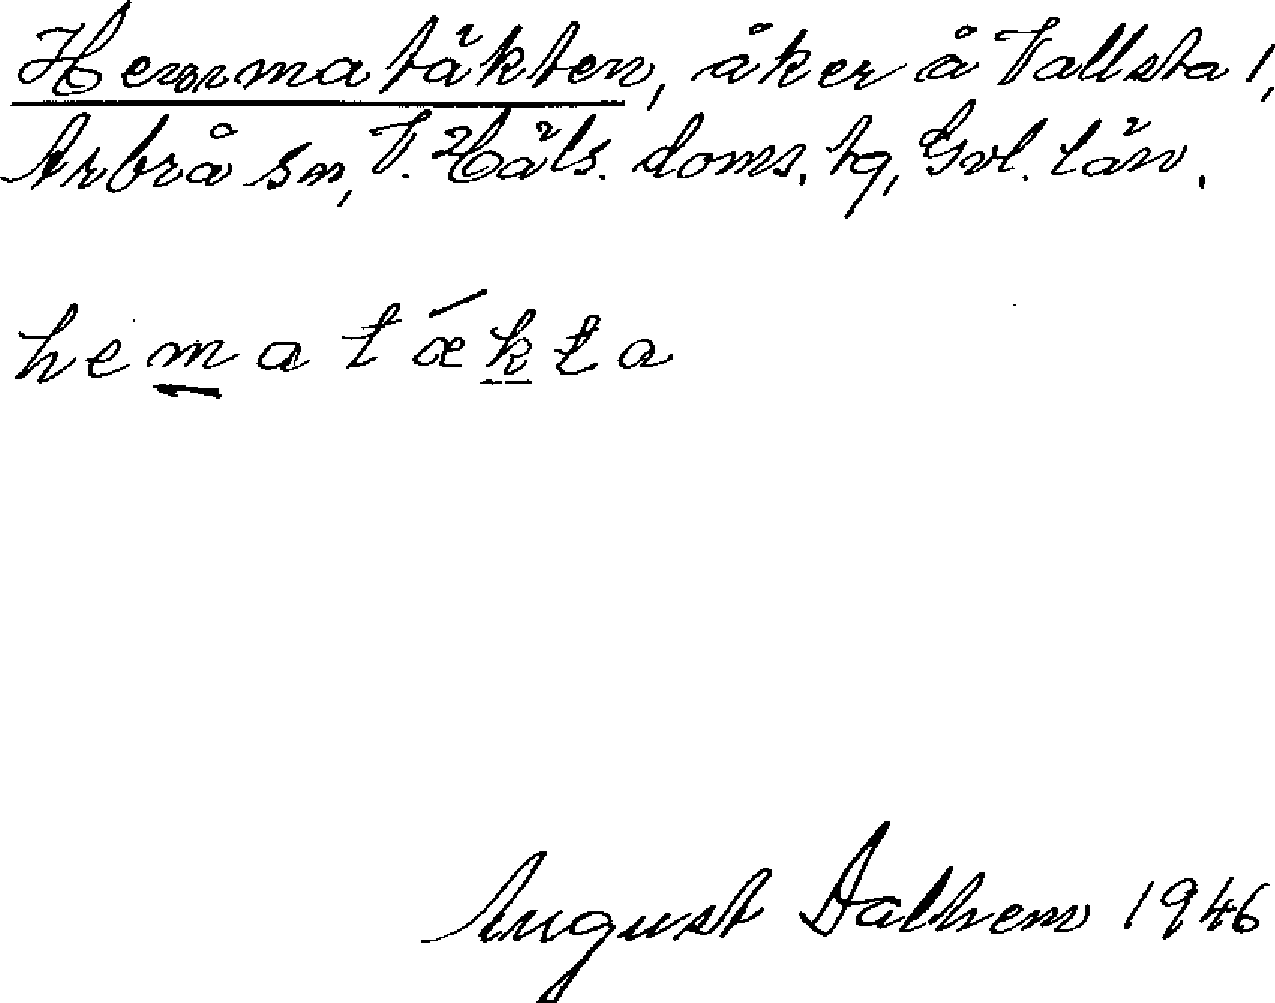 Hemmatäkten, åker å Vallsta 1,
Arbrå sn, V. Häls. doms. tg, Gvl. län.
hematǽkta
August Dalhem 1946